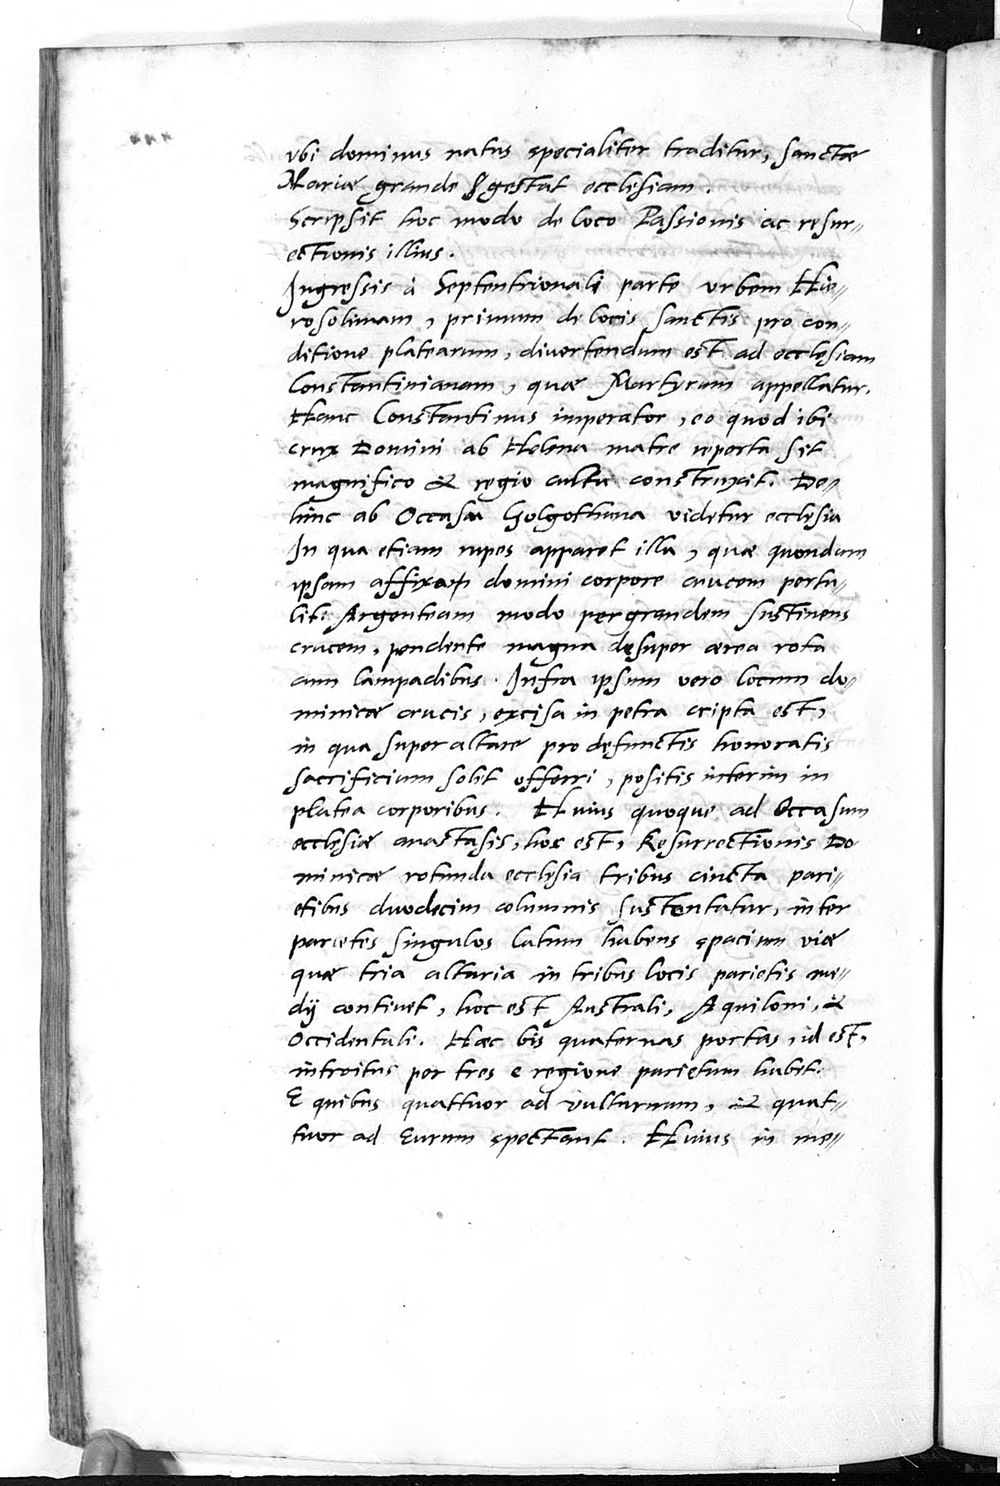 vbi dominus natus specialiter traditur, sanctæ
Mariæ grande gestat ecclesiam.
Scripsit hoc modo de loco Passionis ac resur=
ectionis illius.
Ingressis à Septentrionali parte vrbem Hie=
rosolimam, primum de locis sanctis pro con=
ditione platearum, divertendum est ad ecclesiam
Constantinianam, quæ Martyrum appellatur.
Hanc Constantinus imperator, eo quod ibi
crux Domini ab Helena matre reperta sit
magnifico & regio cultu construxit. De=
hinc ab Occasu Golgothana videtur ecclesia
In qua etiam rupes apparet illa, quæ quondam
ipsam affixo domini corpore crucem pertu=
lit: Argenteam modo pergrandem sustinens
crucem, pendente magna desuper ærea rota
cum lampadibus. Infra ipsum vero locum do=
minicæ crucis, excisa in petra cripta est,
in qua super altare pro defunctis honoratis
sacrificium solit offerri, positis interim in
platea corporibus. Huius quoque ad Occasum
ecclesiæ anastasis, hoc est, Resurrectionis Do
minicæ rotunda ecclesia tribus cincta pari=
etibus duodecim columnis sustentatur, inter
parietes singulos latum habens spacium viæ
quæ tria altaria in tribus locis parietis me=
dij continet, hoc est Australi, Aquiloni, &
Occidentali. Hæc bis quaternas portas, id est,
introitus per tres e regione parietum habet.
E quibus quattuor ad vulturnum, & quat=
tuor ad Eurum spectant. Huius in me=